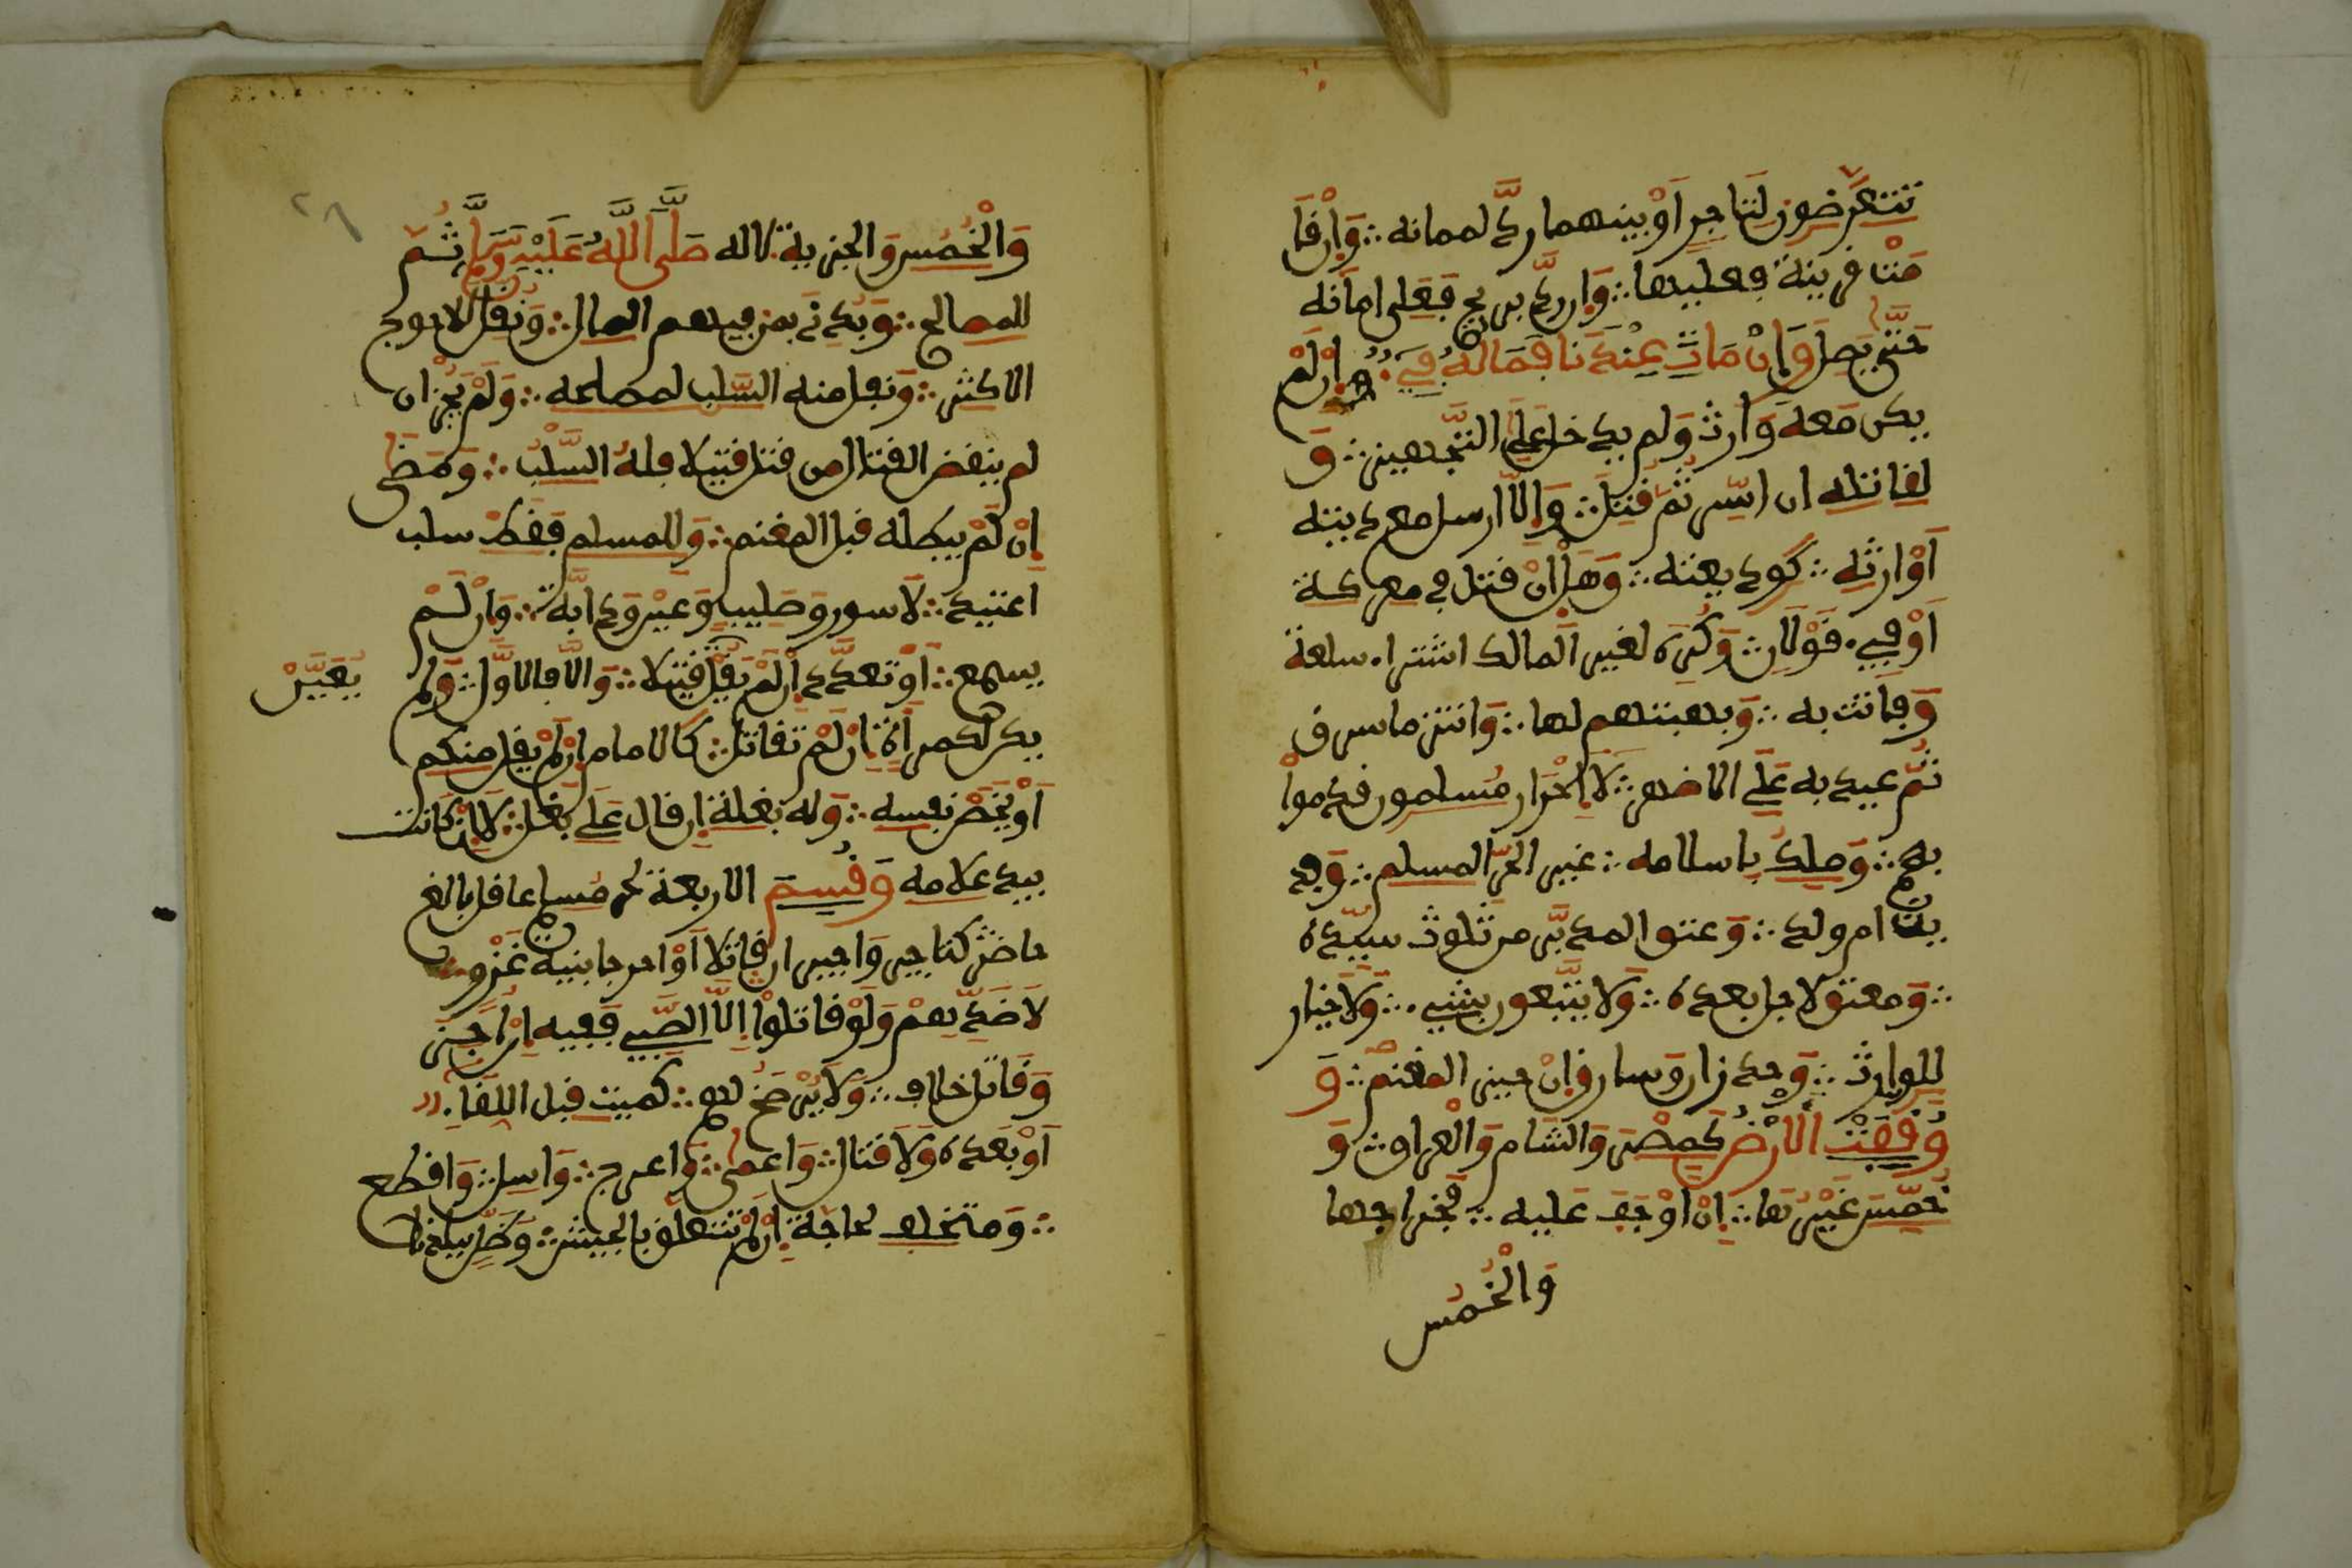 تتعرضون لتاجر أو بينهما رد لممانه ∴ وان قا
مت قرينة فعليها ∴ وان رد بريح فعلى امانه
حتى يصل وان مات عندنا فماله فيء ∴ ان لم
يكن معه وارث ولم يدخل على التجهيز ∴ و
لقاتله ان اسر ثم قتل ∴ والا ارسل مع ديته
لوارثه ∴ كوديعته ∴ وهل وان قتل في معركة
او فيء قولان ∴ وكره لغير المالك اشتراء سلعة
وفاتت به ∴ وبهبتهم لها ∴ وانتزع ما سرق
ثم عيد به على الاظهر ∴ لا احرار مسلمون قدموا
بهم ∴ وملك باسلامه ∴ غير الحر المسلم ∴ وفد
يت ام ولد ∴ وعتق المدبر من ثلوث سيده
∴ ومعتق لاجل بعده ∴ ولا يتبعون بشيء ∴ ولا خيار
للوارث ∴ وحد زان وسارق ان حيز المغنم ∴ و
وقفت الارض كمصر والشام والعراق ∴ و
خمس غيرها ∴ ان اوجف عليه ∴ فخراجها
والخمس
٢٦
والخمس والجزية ∴ لاله صلى الله عليه وسلم ثم
للمصالح ∴ وبدئ بمن فيهم المال ∴ ونقل للاحوج
الاكثر ∴ ونفل منه السلب لمصلحة ∴ ولم يجز ان
لم ينقض القتال من قتل قتيلا فله السلب ∴ ومضى
ان لم يبطله قبل المغنم ∴ وللمسلم فقط سلب
اعتيد ∴ لا سور وصليب وعين ودابة ∴ وان لم
يسمع ∴ او تعدد ان لم يقل قتيلا ∴ والا فالاول ∴ ولم
يعين
يكن لكمراة ان لم تقاتل ∴ كالامام ان لم يقل منكم
او يخص نفسه ∴ وله بغلة ان قال على بغل ∴ لا ان كانت
بيد غلامه وقسم الاربعة لحر مسلم عاقل بالغ
حاضر كتاجر واجير ان قاتلا او اخرجا بنية غزو ∴
لا ضدهم ولو قاتلوا الا الصبي ففيه ان اجيز
وقاتل خلاف ∴ ولا يرضخ لهم ∴ كميت قبل اللقاء
او بعده ولا قتال ∴ واعمى ∴ واعرج ∴ واشل ∴ واقطع
∴ ومتخلف لحاجة ان لم تتعلق بالجيش ∴ وضل ببلدنا